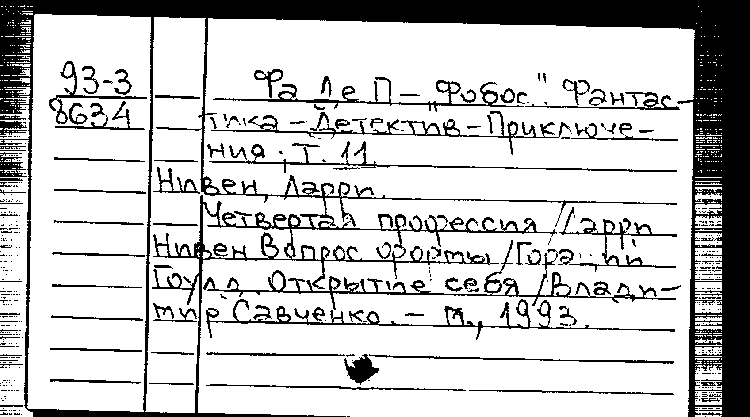 93-3
8634
ФаДеП — "Фобос". Фантас-
тика - Детектив - Приключе-
ния ; Т. 11.
Нивен, Ларри.
Четвертая профессия / Ларри
Нивен Вопрос формы / Гораций
Гоулд. Открытие себя / Влади-
мир Савченко. - М., 1993.